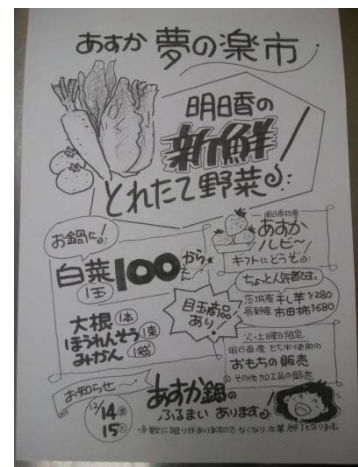 あすか 夢の楽市
明日香の
新鮮
とれたて野菜
お鍋に!
白菜100えんから
1玉
大根1本
ほうれんそう1束
みかん1袋
目玉商品
あり!
明日香特産
あすか
ルビー
ギフトにどうぞ
ちょっと人気者です。
茨城産 干し芋 ¥280
長野産 市田柿 ¥680
火・土曜日限定
明日香産もち米使用の
おもちの販売
その他加工品の販売
お知らせ
12/14金
15土
あすか鍋の
ふるまい あります
数に限りがありますので なくなり次第 終了となります。